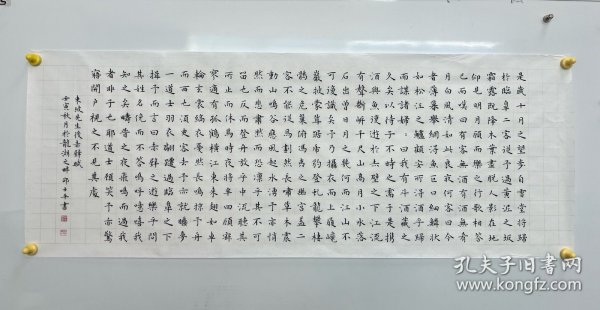 是歲十月之望步自雪堂將歸
於臨皋二客從予過黃泥之坂
霜露既降木葉盡脫人影在地
仰見明月顧而樂之行歌相答
已而嘆曰有客無酒有酒無肴
月白風清如此良夜何客曰今
者薄暮舉網得魚巨口細鱗狀
如松江之鱸顧安所得酒乎歸
而謀諸婦婦曰我有斗酒藏之
久矣以待子不時之需於是攜
酒與魚復遊於赤壁之下江流
有聲斷岸千尺山高月小水落
石出曾日月之幾何而江山不
可復識矣予乃攝衣而上履巉
巖披蒙茸踞虎豹登虬龍攀棲
鶻之危巢俯馮夷之幽宮蓋二
客不能從焉劃然長嘯草木震
動山鳴谷應風起水湧予亦悄
然而悲肅然而恐凜乎其不可
留也反而登舟放乎中流聽其
所止而休焉時夜將半四顧寂
寥適有孤鶴橫江東來翅如車
輪玄裳縞衣戛然長鳴掠予舟
而西也須臾客去予亦就睡夢
一道士羽衣翩躚過臨皋之下
揖予而言曰赤壁之遊樂乎問
其姓名俛而不答嗚呼噫嘻我
知之矣疇昔之夜飛鳴而過我
者非子也耶道士顧笑予亦驚
寤開戶視之不見其處
東坡先生後赤壁賦
壬寅秋月於龍湖之畔 書
孔夫子旧书网
www.kongfz.com